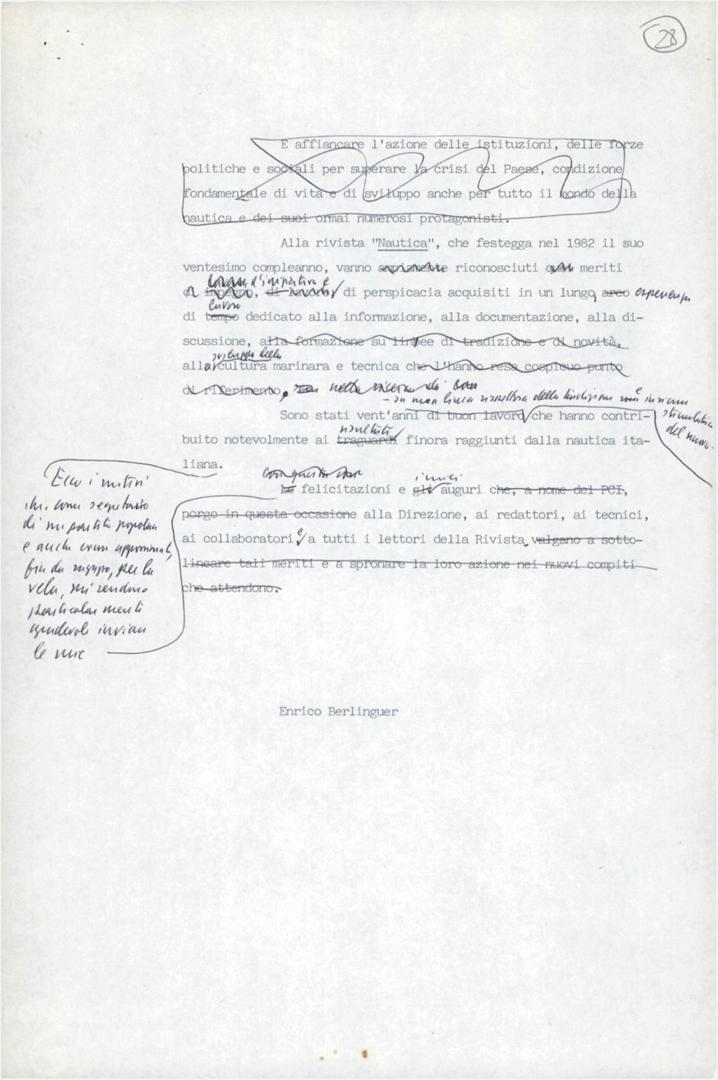 28
E affiancare l'azione delle istituzioni, delle forze
politiche e sociali per superare la crisi del Paese, condizione
fondamentale di vita e di sviluppo anche per tutto il mondo della
nautica e dei suoi ormai numerosi protagonisti.
Alla rivista "Nautica", che festegga nel 1982 il suo
ventesimo compleanno, vanno riconosciuti meriti
d'iniziativa e
di perspicacia acquisiti in un lungo arco
lavoro
di tempo dedicato alla informazione, alla documentazione, alla di-
scussione, alla formazione su linee di tradizione e di novità,
sviluppo della
alla cultura marinara e tecnica che l'hanno resa cospicuo punto
di riferimento,
Sono stati vent'anni di buon lavoro che hanno contri-
risultati
buito notevolmente ai traguardi finora raggiunti dalla nautica ita-
liana.
Le felicitazioni e gli auguri che, a nome del PCI,
porgo in questa occasione alla Direzione, ai redattori, ai tecnici,
ai collaboratori e a tutti i lettori della Rivista valgano a sotto-
lineare tali meriti e a spronare la loro azione nei nuovi compiti
che attendono.
Ecco i motivi
che, come segretario
di un partito popolare
e anche come appassionato,
fin da ragazzo, per la
vela, mi rendono
particolarmente
gradevole inviare
le mie
Enrico Berlinguer